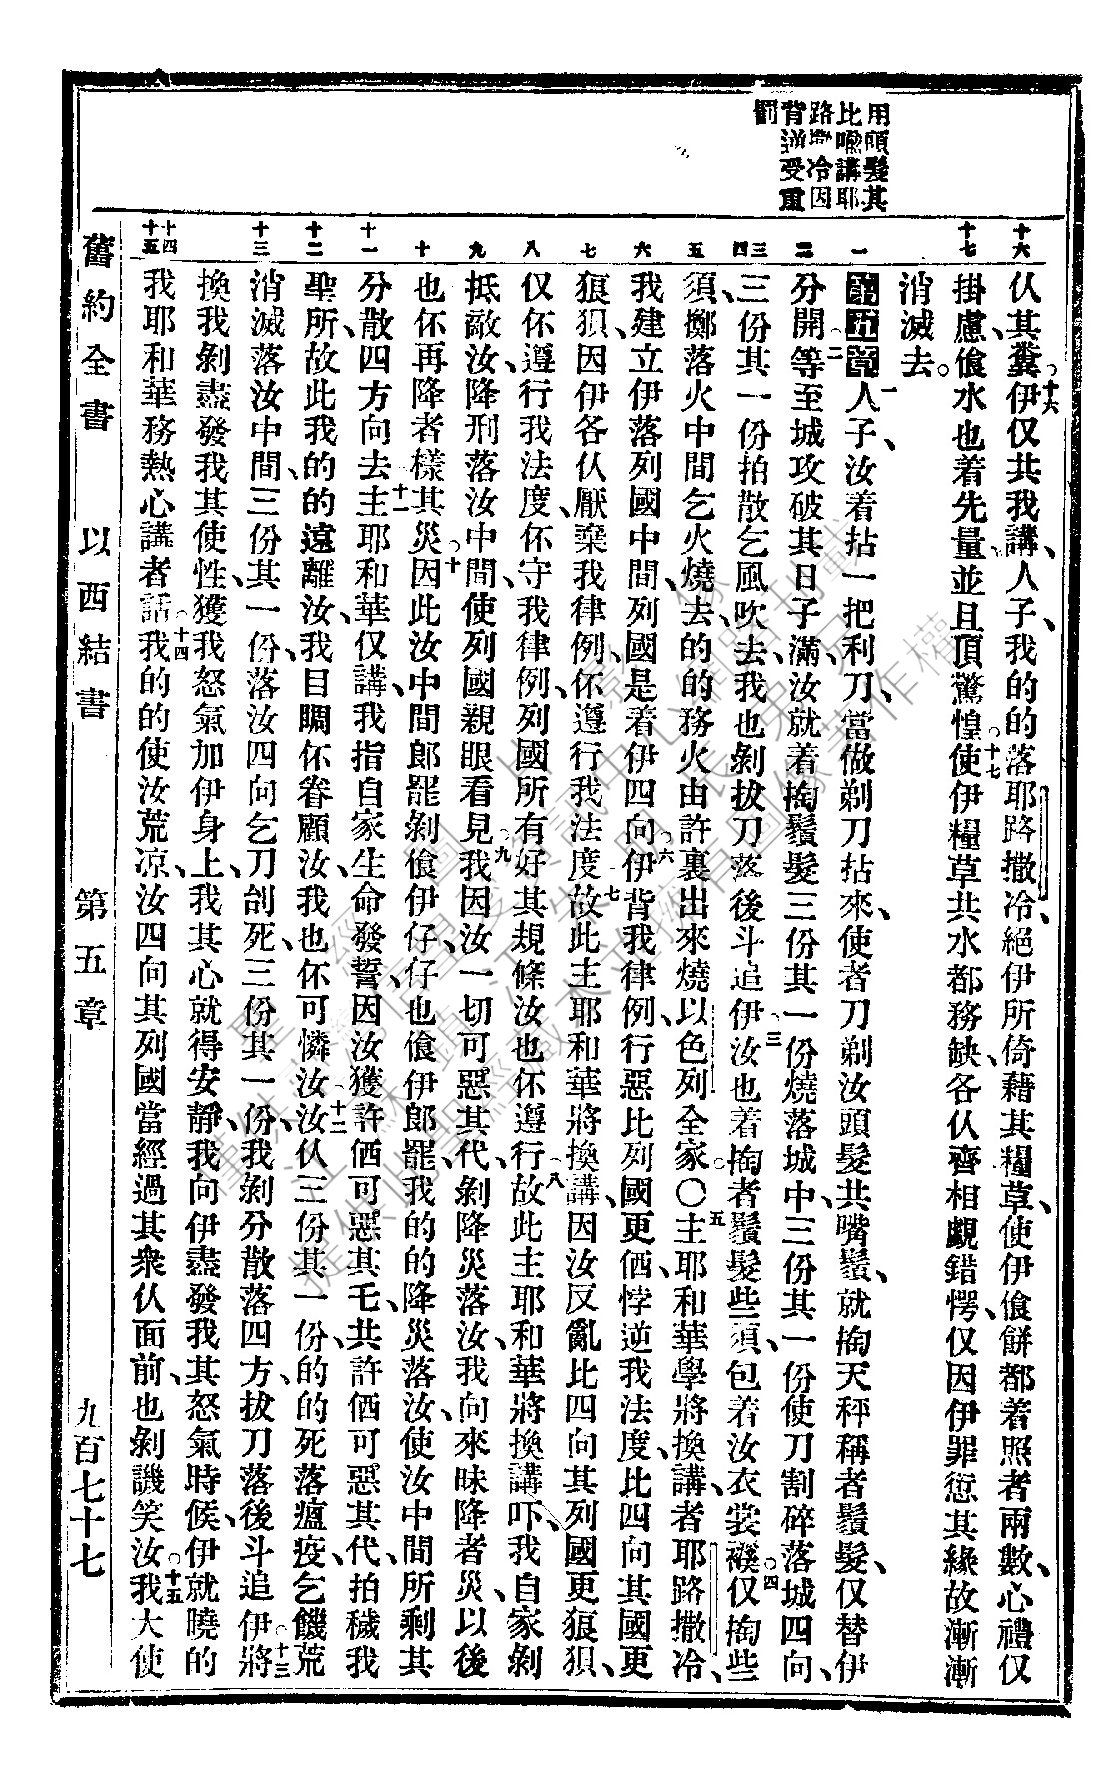 用頭髮其
比喻講耶
路撒冷因
背逆受重
罰
十六
十七
一
二
三
四
五
六
七
八
九
十
十一
十二
十三
十四
十五
仈其糞。十六伊仅共我講、人子、我的的落耶路撒冷、絕伊所倚藉其糧草、使伊飡餅都着照者兩數、心禮仅
掛慮、飡水也着先量、並且頂驚惶。十七使伊糧草共水都務缺、各仈齊相覷錯愕、仅因伊罪愆其緣故漸漸
消滅去。
第五章一人子、汝着拈一把利刀、當做剃刀拈來、使者刀剃汝頭髮共嘴鬚、就掏天秤稱者鬚髮、仅替伊
分開。二等至城攻破其日子滿、汝就着掏鬚髮三份其一份燒落城中、三份其一份使刀割碎落城四向、
三份其一份拍散乞風吹去、我也剝拔刀落後斗追伊。三汝也着掏者鬚髮些須、包着汝衣裳襆。四仅掏些
須、擲落火中間乞火燒去、的的務火由許裏出來燒以色列全家。〇五主耶和華學將換講、者耶路撒冷、
我建立伊落列國中間、列國是着伊四向。六伊背我律例、行惡比列國更𠍆悖逆我法度、比四向其國更
狼狽、因伊各仈厭棄我律例、伓遵行我法度。七故此主耶和華將換講、因汝反亂比四向其列國更狼狽、
仅伓遵行我法度、伓守我律例、列國所有好其規條、汝也伓遵行。八故此主耶和華將換講、吓、我自家剝
抵敵汝、降刑落汝中間、使列國親眼看見。九我因汝一切可惡其代、剝降災落汝、我向來昧降者災、以後
也伓再降者樣其災。十因此汝中間郎罷剝飡伊仔、仔也飡伊郎罷、我的的降災落汝、使汝中間所剩其
分散四方向去。十一主耶和華仅講、我指自家生命發誓、因汝獲許𠍆可惡其乇、共許𠍆可惡其代、拍穢我
聖所、故此我的的遠離汝、我目睭伓眷顧汝、我也伓可憐汝。十二汝仈三份其一份、的的死落瘟疫、乞饑荒
消滅落汝中間、三份其一份落汝四向乞刀刣死、三份其一份、我剝分散落四方、拔刀落後斗追伊。十三將
換我剝盡發我其使性、獲我怒氣加伊身上、我其心就得安靜、我向伊盡發我其怒氣時候、伊就曉的
我耶和華務熱心講者話。十四我的的使汝荒凉、汝四向其列國當經過其衆仈面前、也剝譏笑汝。十五我大使
舊約全書　以西結書　第五章　九百七十七